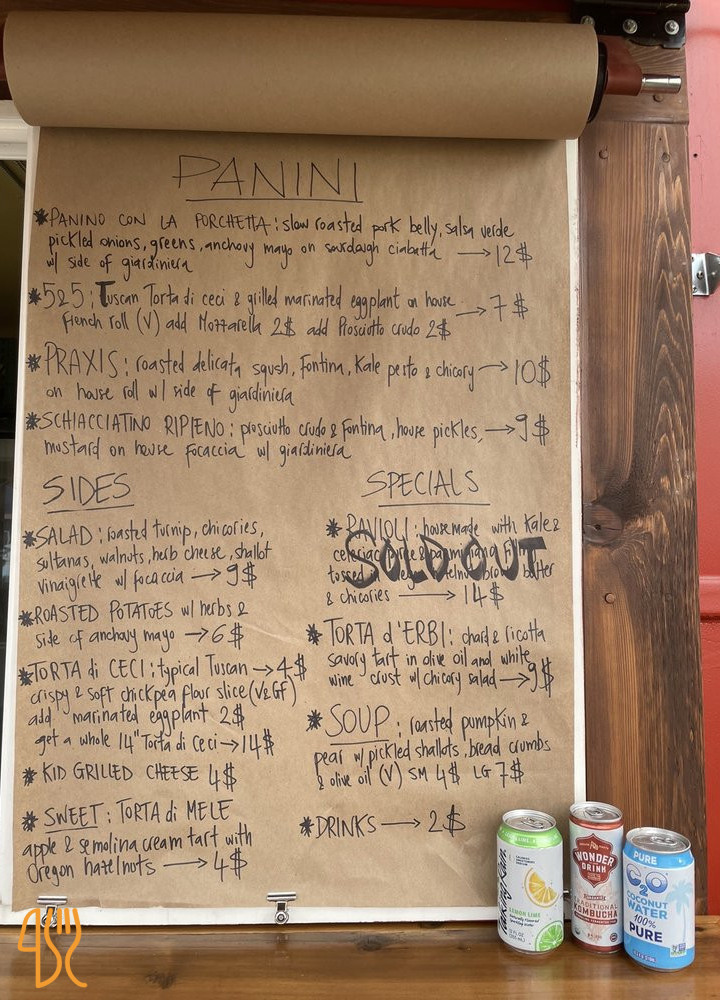 PANINI
*PANINO CON LA PORCHETTA: slow roasted pork belly, salsa verde
pickled onions, greens, anchovy mayo on sourdough ciabatta → 12$
w/ side of giardiniera
*5&5: Tuscan Torta di ceci & grilled marinated eggplant on house → 7$
French roll (V) add Mozzarella 2$ add Prosciutto crudo 2$
*PRAXIS: roasted delicata sqush, Fontina, Kale pesto & chicory → 10$
on house roll w/ side of giardiniera
*SCHIACCIATINO RIPIENO: prosciutto crudo & Fontina, house pickles, → 9$
mustard on house focaccia w/ giardiniera
SIDES
*SALAD: roasted turnip, chicories,
sultanas, walnuts, herb cheese, shallot
vinaigrette w/ focaccia → 9$
*ROASTED POTATOES w/ herbs &
side of anchovy mayo → 6$
*TORTA di CECI: typical Tuscan → 4$
crispy & soft chickpea flour slice (V&GF)
add marinated eggplant 2$
get a whole 14" Torta di Ceci → 14$
*KID GRILLED CHEESE 4$
*SWEET: TORTA di MELE
apple & semolina cream tart with
Oregon hazelnuts → 4$
SPECIALS
*RAVIOLI: housemade with Kale &
celeriac
SOLD OUT
tossed in butter
& chicories → 14$
*TORTA d'ERBI: chard & ricotta
savory tart in olive oil and white
wine crust w/ chicory salad → 9$
*SOUP: roasted pumpkin &
pear w/ pickled shallots, bread crumbs
& olive oil (V) SM 4$ LG 7$
*DRINKS → 2$
LEMON LIME
WONDER
DRINK
TRADITIONAL
KOMBUCHA
PURE
C2O
COCONUT
WATER
100%
PURE